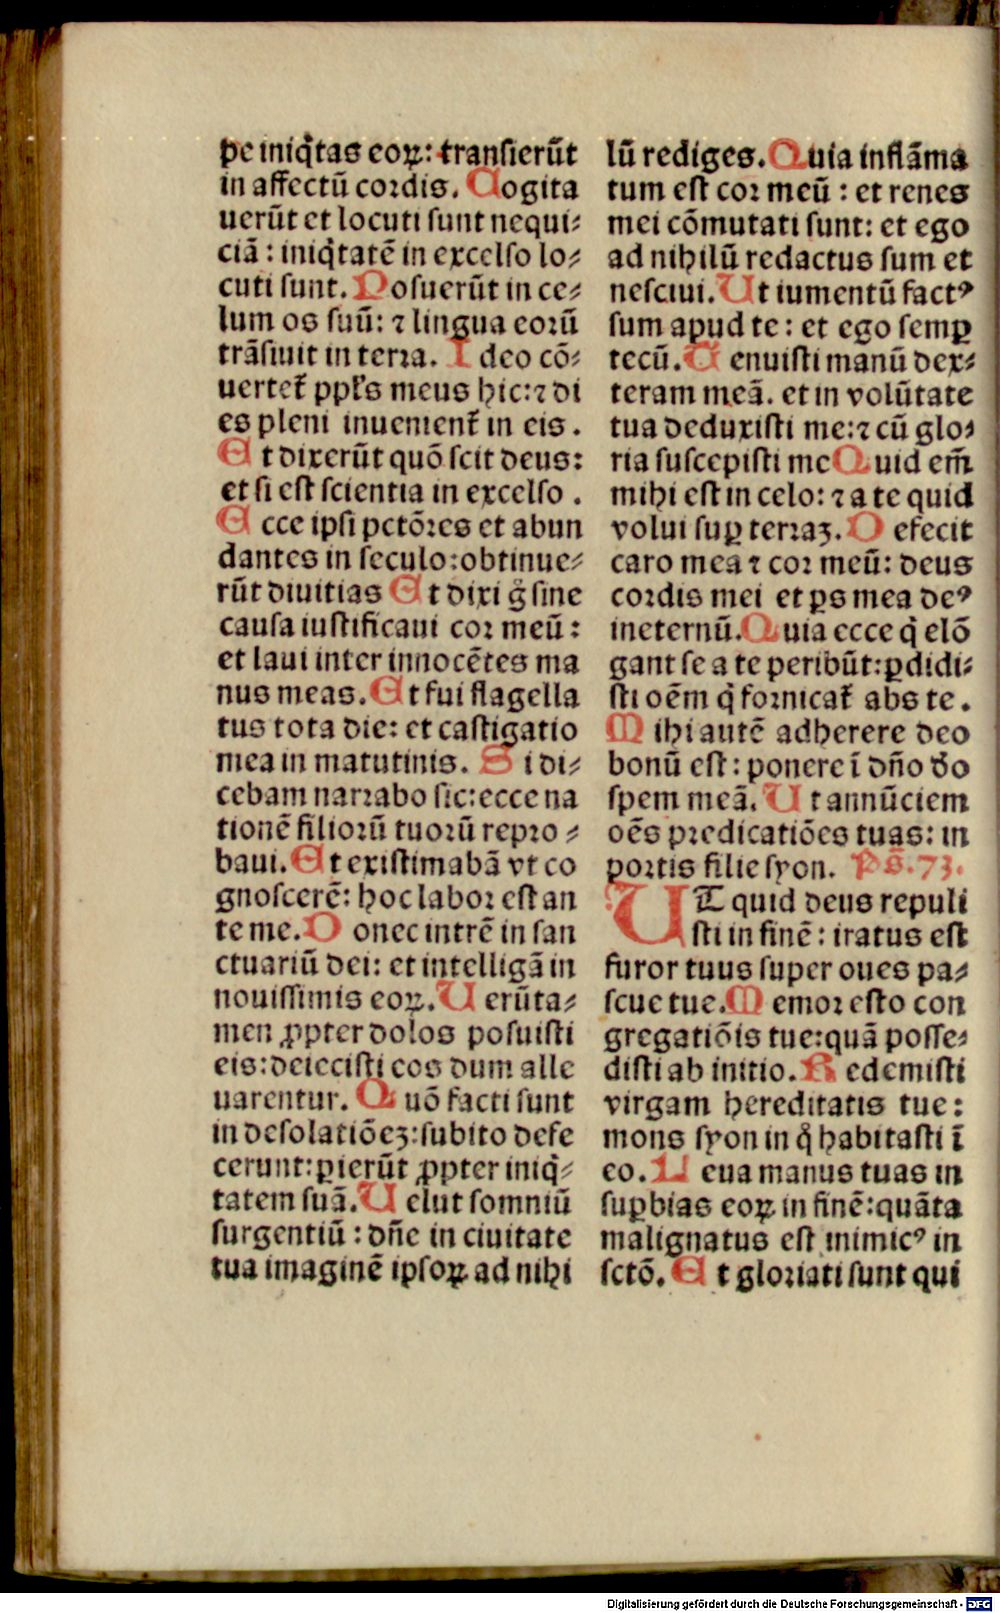 pe iniq̃tas eoꝝ: transierũt
in affectũ cordis. Cogita
uerũt et locuti sunt nequi⸗
ciã: iniq̃tatẽ in excelso lo⸗
cuti sunt. Posuerũt in ce⸗
lum os suũ: ⁊ lingua eorũ
trãsiuit in terra. I deo cõ⸗
uertet᷑ ppl̃s meus hic: ⁊ di
es pleni inuenient᷑ in eis.
E t dixerũt quõ scit deus:
et si est scientia in excelso.
E cce ipsi pctõres et abun
dantes in seculo: obtinue⸗
rũt diuitias E t dixi g̊ sine
causa iustificaui cor meũ:
et laui inter innocẽtes ma
nus meas. E t fui flagella
tus tota die: et castigatio
mea in matutinis. S i di⸗
cebam narrabo sic: ecce na
tionẽ filiorũ tuorũ repro⸗
baui. E t existimabã vt co
gnoscerẽ: hoc labor est an
te me. D onec intrẽ in san
ctuariũ dei: et intelligã in
nouissimis eoꝝ. U erũta⸗
men ꝓpter dolos posuisti
eis: deiecisti eos dum alle
uarentur. Q uõ facti sunt
in desolatiõeꝫ: subito defe
cerunt: ꝑierũt ꝓpter iniq̃⸗
tatem suã. U elut somniũ
surgentiũ: dñe in ciuitate
tua imaginẽ ipsoꝝ ad nihi
lũ rediges. Quia inflãma
tum est cor meũ: et renes
mei cõmutati sunt: et ego
ad nihilũ redactus sum et
nesciui. Ut iumentũ factꝰ
sum apud te: et ego semꝑ
tecũ. T enuisti manũ dex⸗
teram meã. et in volũtate
tua deduxisti me: ⁊ cũ glo⸗
ria suscepisti me Q uid em̃
mihi est in celo: ⁊ a te quid
volui suꝑ terraꝫ. D efecit
caro mea ⁊ cor meũ: deus
cordis mei et ꝑs mea deꝰ
in eternũ. Q uia ecce q̃ elõ
gant se a te peribũt: ꝑdidi⸗
sti oẽm q̃ fornicat᷑ abs te.
M ihi autẽ adherere deo
bonũ est: ponere ĩ dño deo
spem meã. U t annũciem
oẽs predicatiões tuas: in
portis filie syon. Ps̃. 73.
UT quid deus repuli
sti in finẽ: iratus est
furor tuus super oues pa⸗
scue tue. M emor esto con
gregatiõis tue: quã posse⸗
disti ab initio. R edemisti
virgam hereditatis tue:
mons syon in q̊ habitasti ĩ
eo. L eua manus tuas in
suꝑbias eoꝝ in finẽ: quãta
malignatus est inimicꝰ in
sctõ. E t gloriati sunt qui
Digitalisierung gefördert durch die Deutsche Forschungsgemeinschaft - DFG